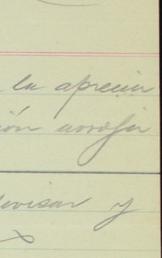 la aprecia
ión arroja
revisar y